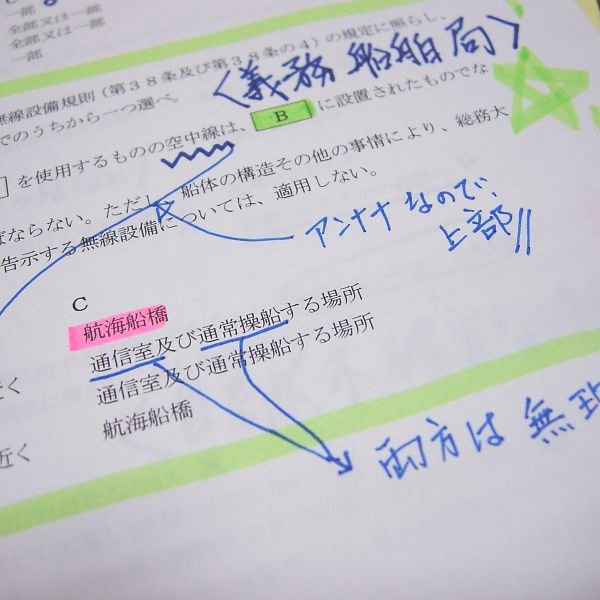 一部
全部又は一部
全部又は一部
一部
無線設備規則(第38条及び第38条の4)の規定に照らし、
でのうちから一つ選べ。
<義務船舶局>
を使用するものの空中線は、 B に設置されたものでな
ばならない。ただし、船体の構造その他の事情により、総務大
告示する無線設備については、適用しない。
アンテナなので、
上部
C
航海船橋
通信室及び通常操船する場所
近く 通信室及び通常操船する場所
近く 航海船橋
両方は無